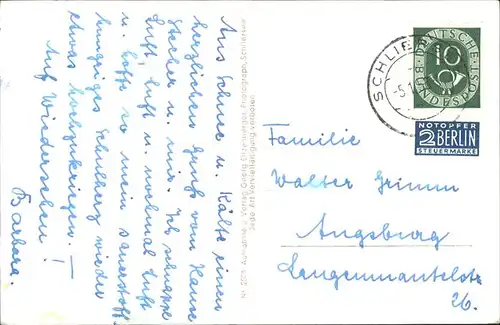 Aus Schnee u. Kälte einen
herzlichen Gruß von Hans
u. mir. Ich schnappe
Luft, Luft u. nochmal Luft
u. hoffe so mein sauerstoff-
hungriges Schulherz wieder
etwas hochzukriegen. —
Auf Wiedersehen!
Barbara.
Verlag Georg
Schliersee
Jede Art Vervielfältigung verboten
SCHLIE
-5.1
DEUTSCHE
BUNDESPOST
10
NOTOPFER
2 BERLIN
STEUERMARKE
Familie
Walter Grimm
Augsburg
Langenmantelstr
26.